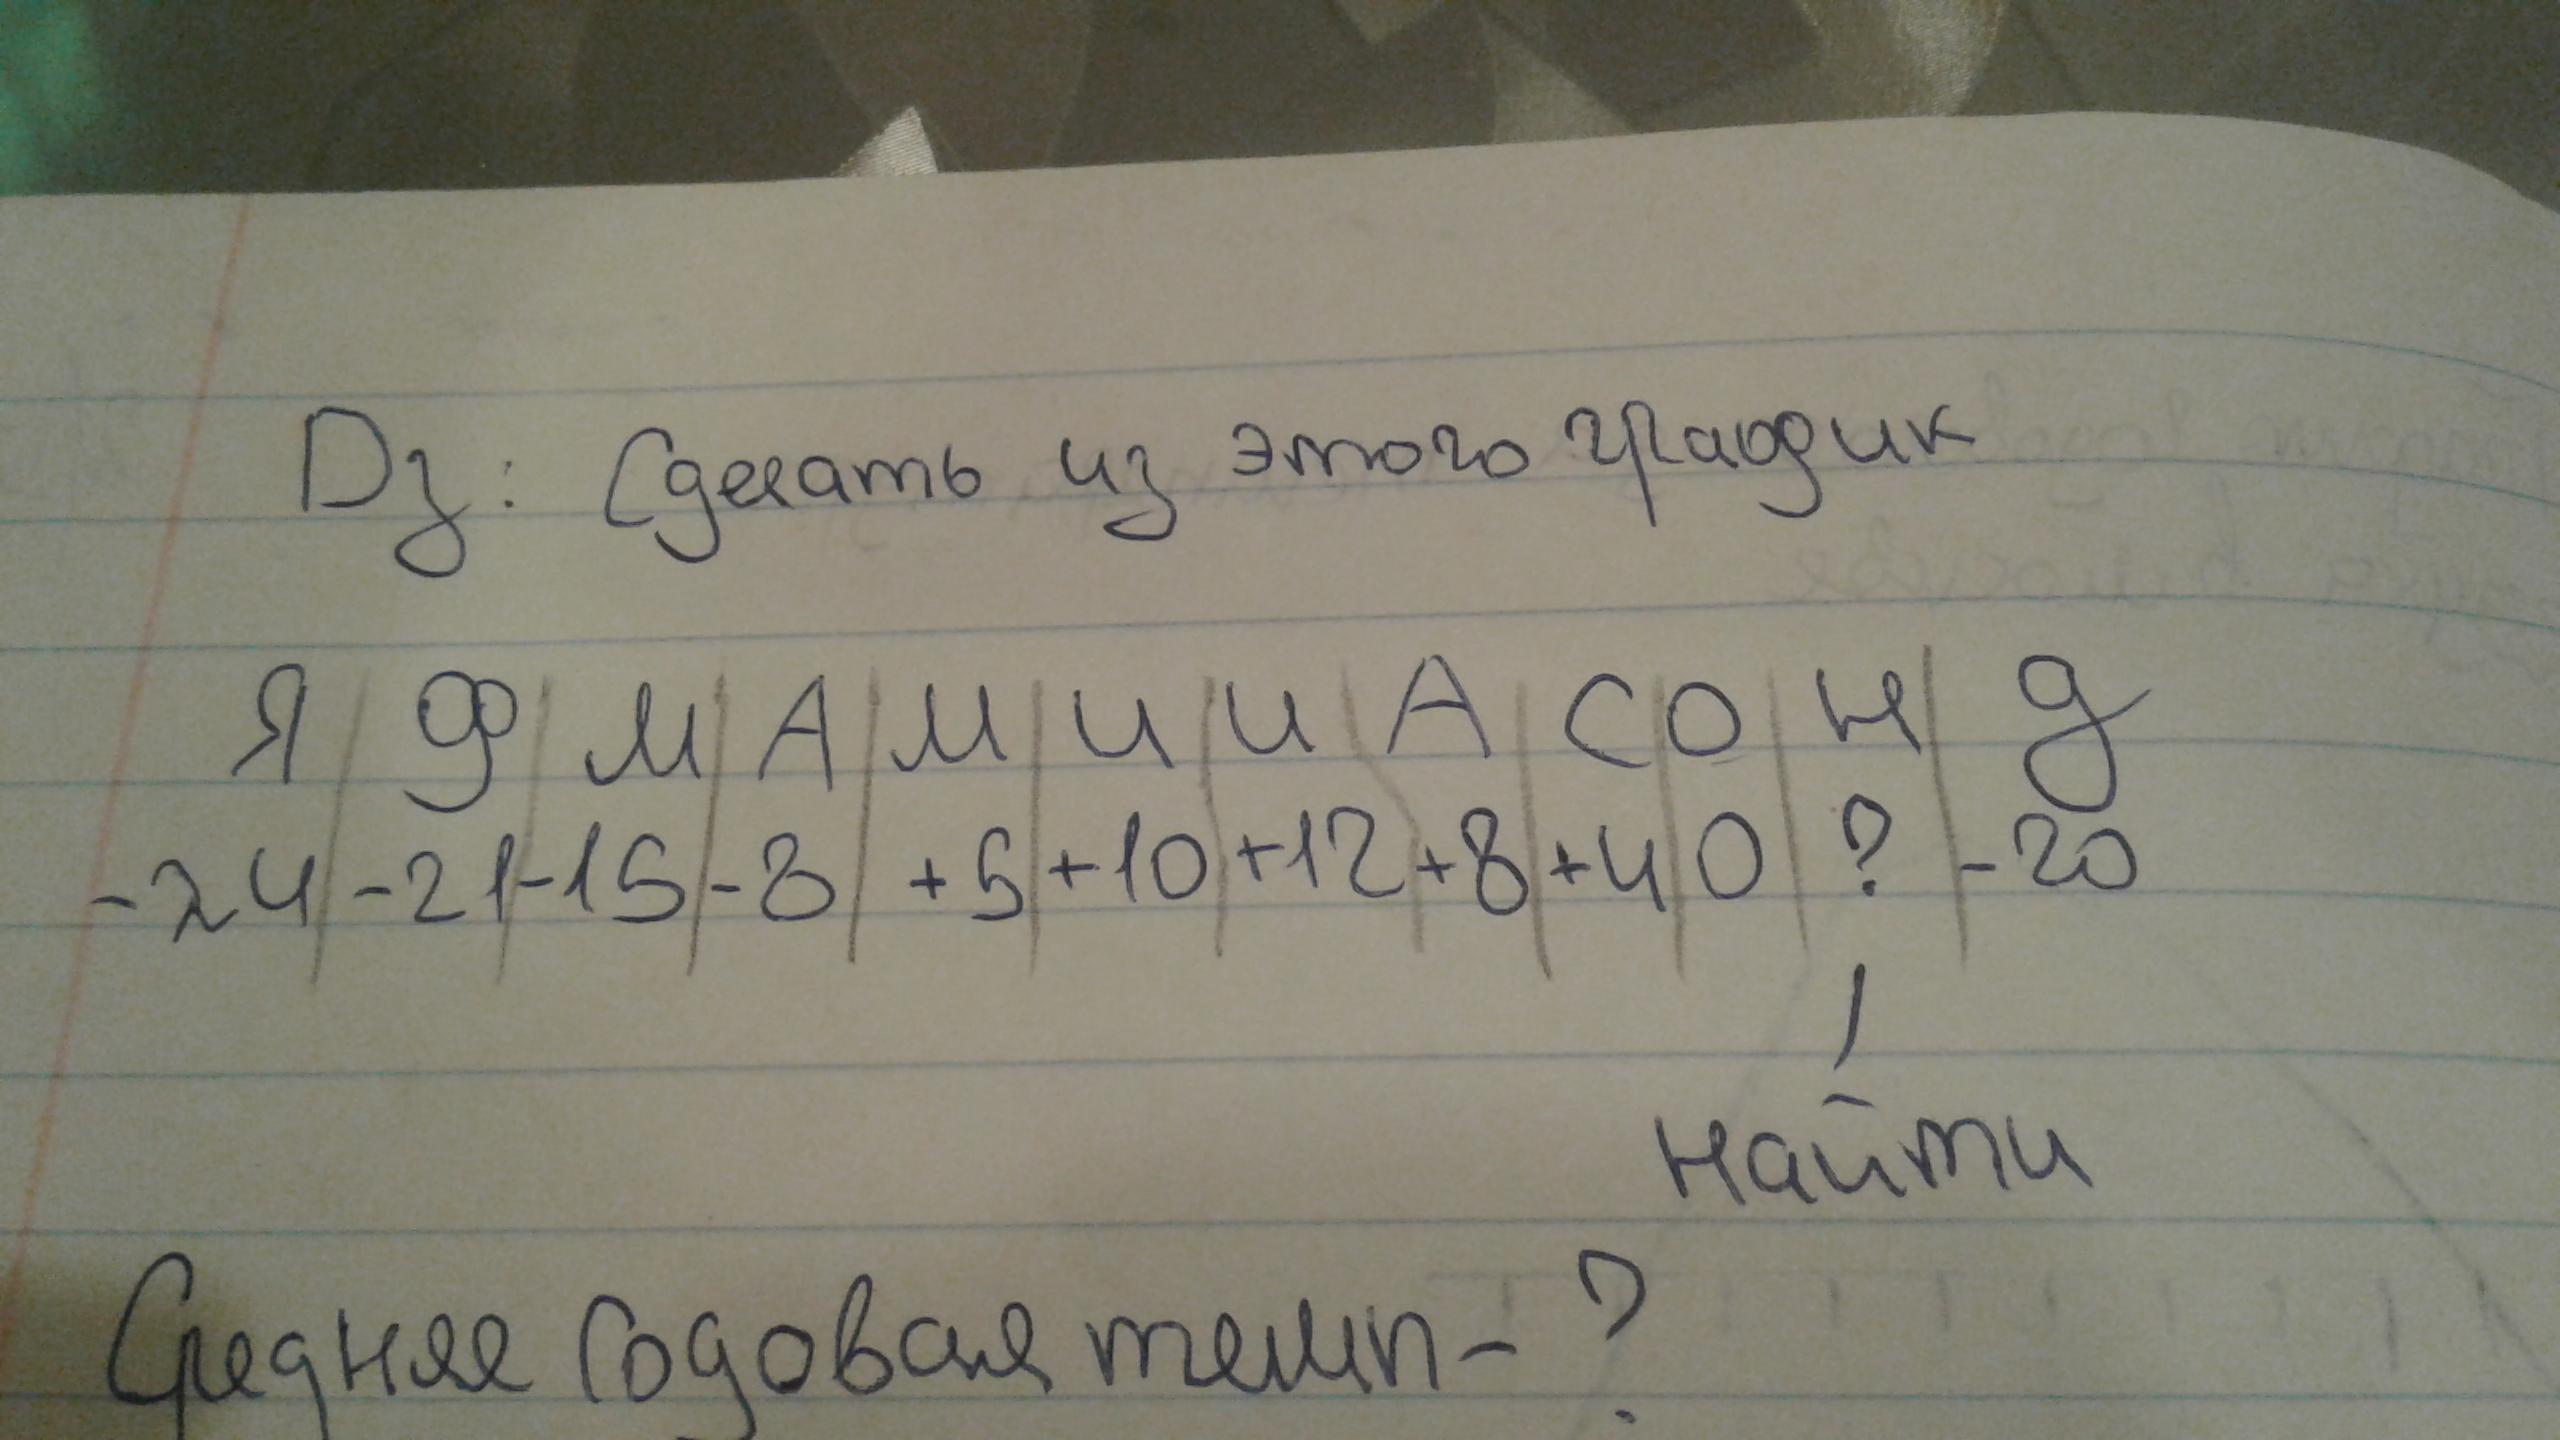 Dз: Сделать из этого график
Я Ф М А М И И А С О Н Д
-24 -21 -15 -8 +5 +10 +12 +8 +4 0 ? -20
найти
Средняя годовая темп-?